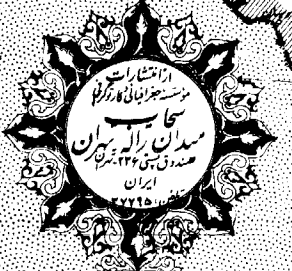 از انتشارات
مؤسسه جغرافیائی و کارتوگرافی
سحاب
میدان ژاله تهران
صندوق پستی ۲۳۶ تهران
ایران
تلفن: ۳۷۲۹۵۱